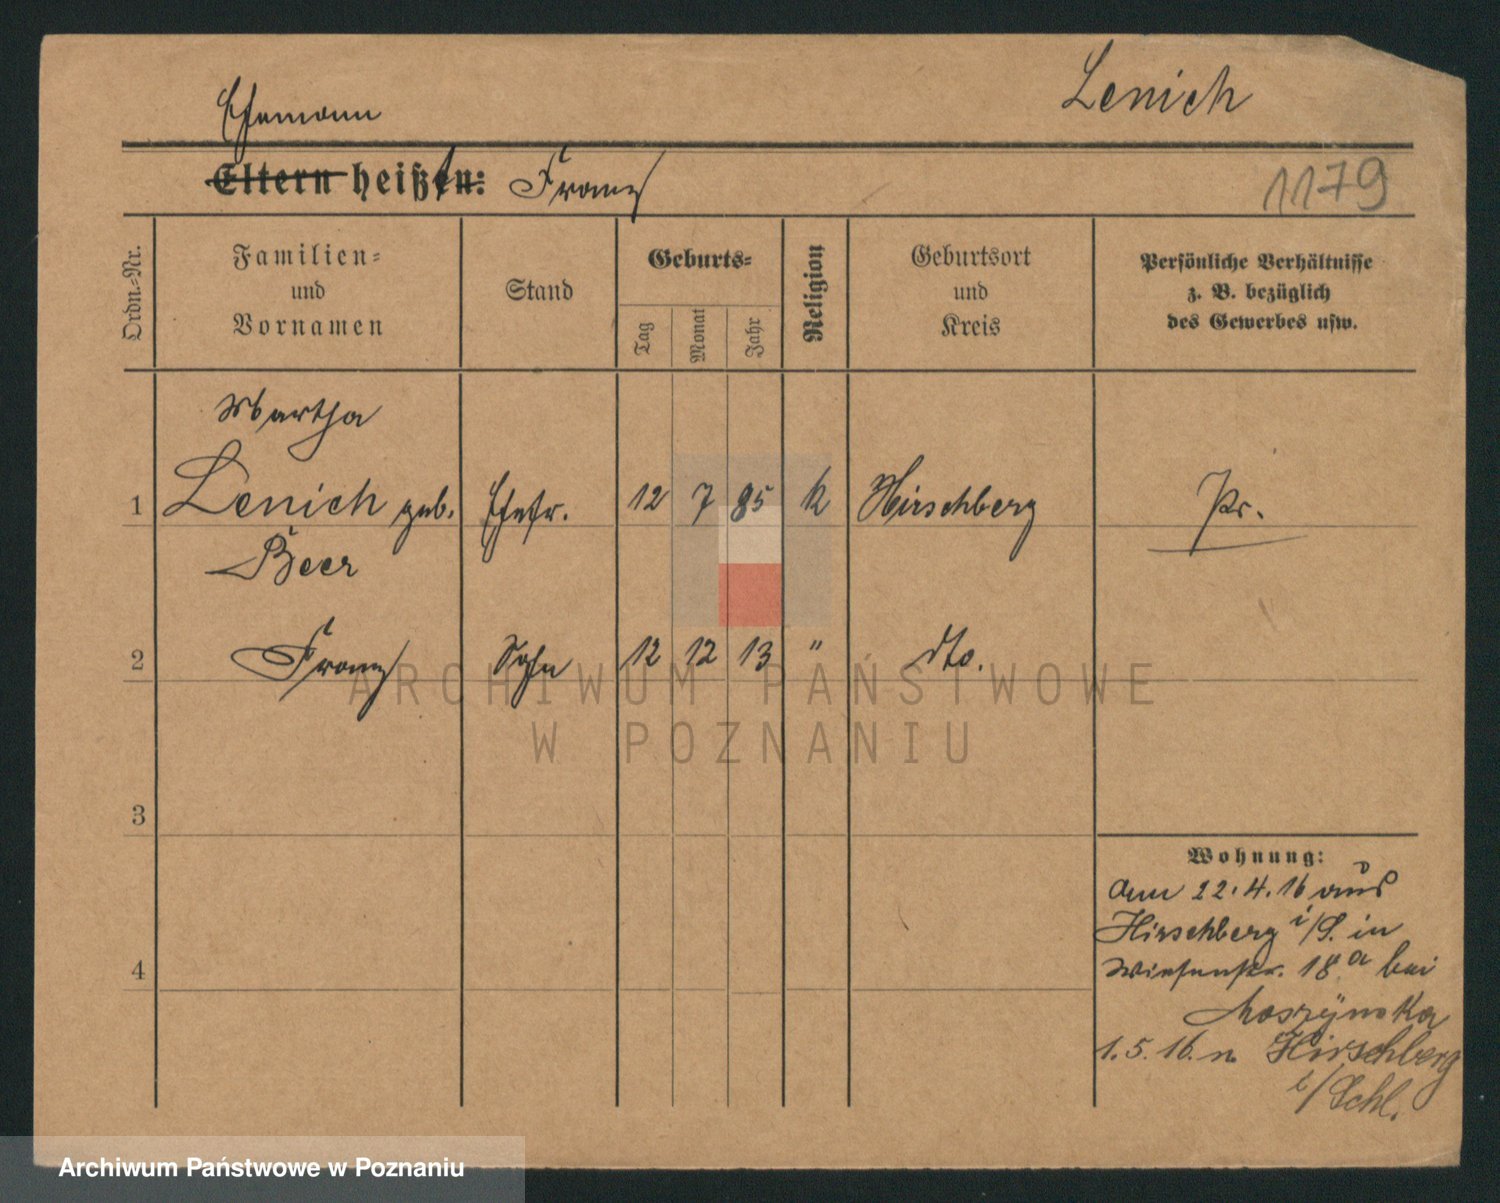 Lenich
Ehemann
Eltern heißen: Franz
1179
Ordn.-Nr.
Familien-
und
Vornamen
Stand
Geburts-
Tag
Monat
Jahr
Religion
Geburtsort
und
Kreis
Persönliche Verhältnisse
z. B. bezüglich
des Gewerbes usw.
Martha
1 Lenich geb. Ehefr. 12 7 85 k Hirschberg Pr.
Beer
2 Franz Sohn 12 12 13 " dto.
ARCHIWUM PAŃSTWOWE
W POZNANIU
3
Wohnung:
am 22.4.16 aus
Hirschberg i/S. in
Wiesenstr. 18a bei
4
Moszýnska
1.5.16. n Hirschberg
i/Schl.
Archiwum Państwowe w Poznaniu